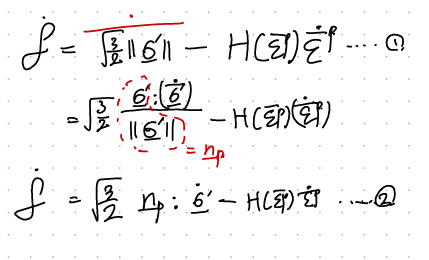 ḟ = √(3/2) ‖σ′‖ − H(ε̄ᵖ) ε̄̇ᵖ ---- ①
= √(3/2) σ′:(σ̇′) / ‖σ′‖ − H(ε̄ᵖ)(ε̄̇ᵖ)
= nₚ
ḟ = √(3/2) nₚ : σ̇′ − H(ε̄ᵖ) ε̄̇ᵖ ---- ②